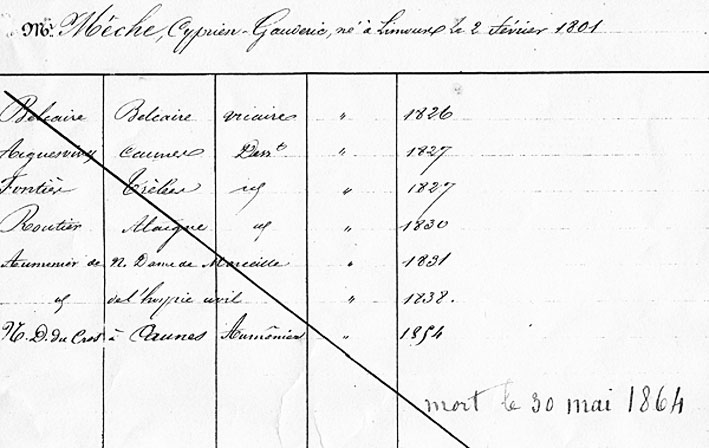 Mr. Mêche, Cyprien-Gauderic, né à Limoux le 2 février 1801
Belcaire Belcaire vicaire " 1826
Aiguesvives Caunes Desst " 1827
Fontiès Trèbes id " 1827
Routier Alaigne id " 1830
Aumônier de N. Dame de Marceille " 1831
id de l'hospice civil " 1838.
N. D. du Cros à Caunes Aumônier " 1854
mort le 30 mai 1864